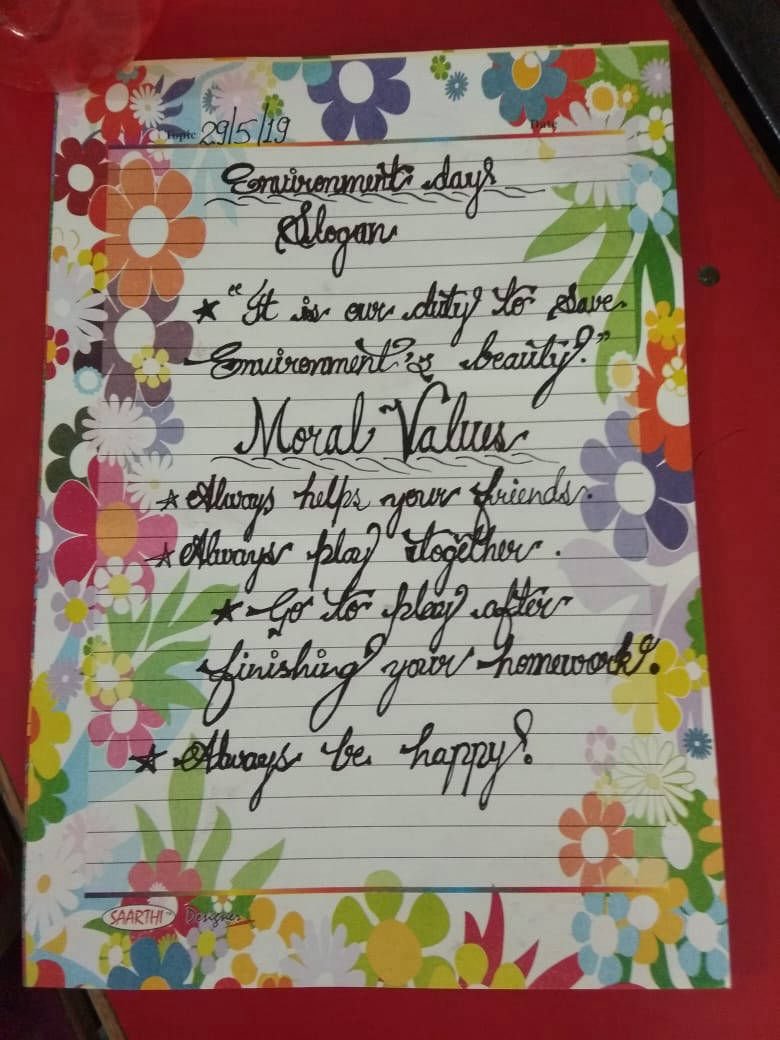 Topic 29/5/19
Date
Environment days
Slogan
★ "It is our duty to save
Environment's beauty."
Moral Values
★ Always helps your friends.
★ Always play together.
★ Go to play after
finishing your homework.
★ Always be happy.
SAARTHI™ Designer